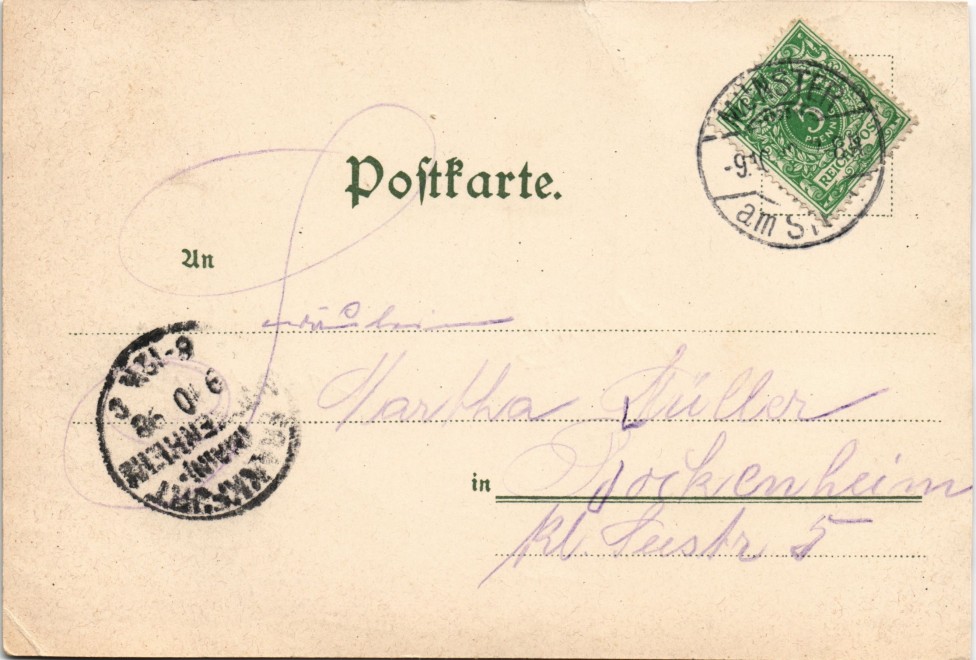 Postkarte.
MÜNSTER
5
PFENNIG
REICHSPOST
-9.10
am St.
An
Fräulein
Martha Müller
in Bockenheim
kl. Seestr 5
FRANKFURT
(MAIN)-
BOCKENHEIM
9 10 98
8-12N.